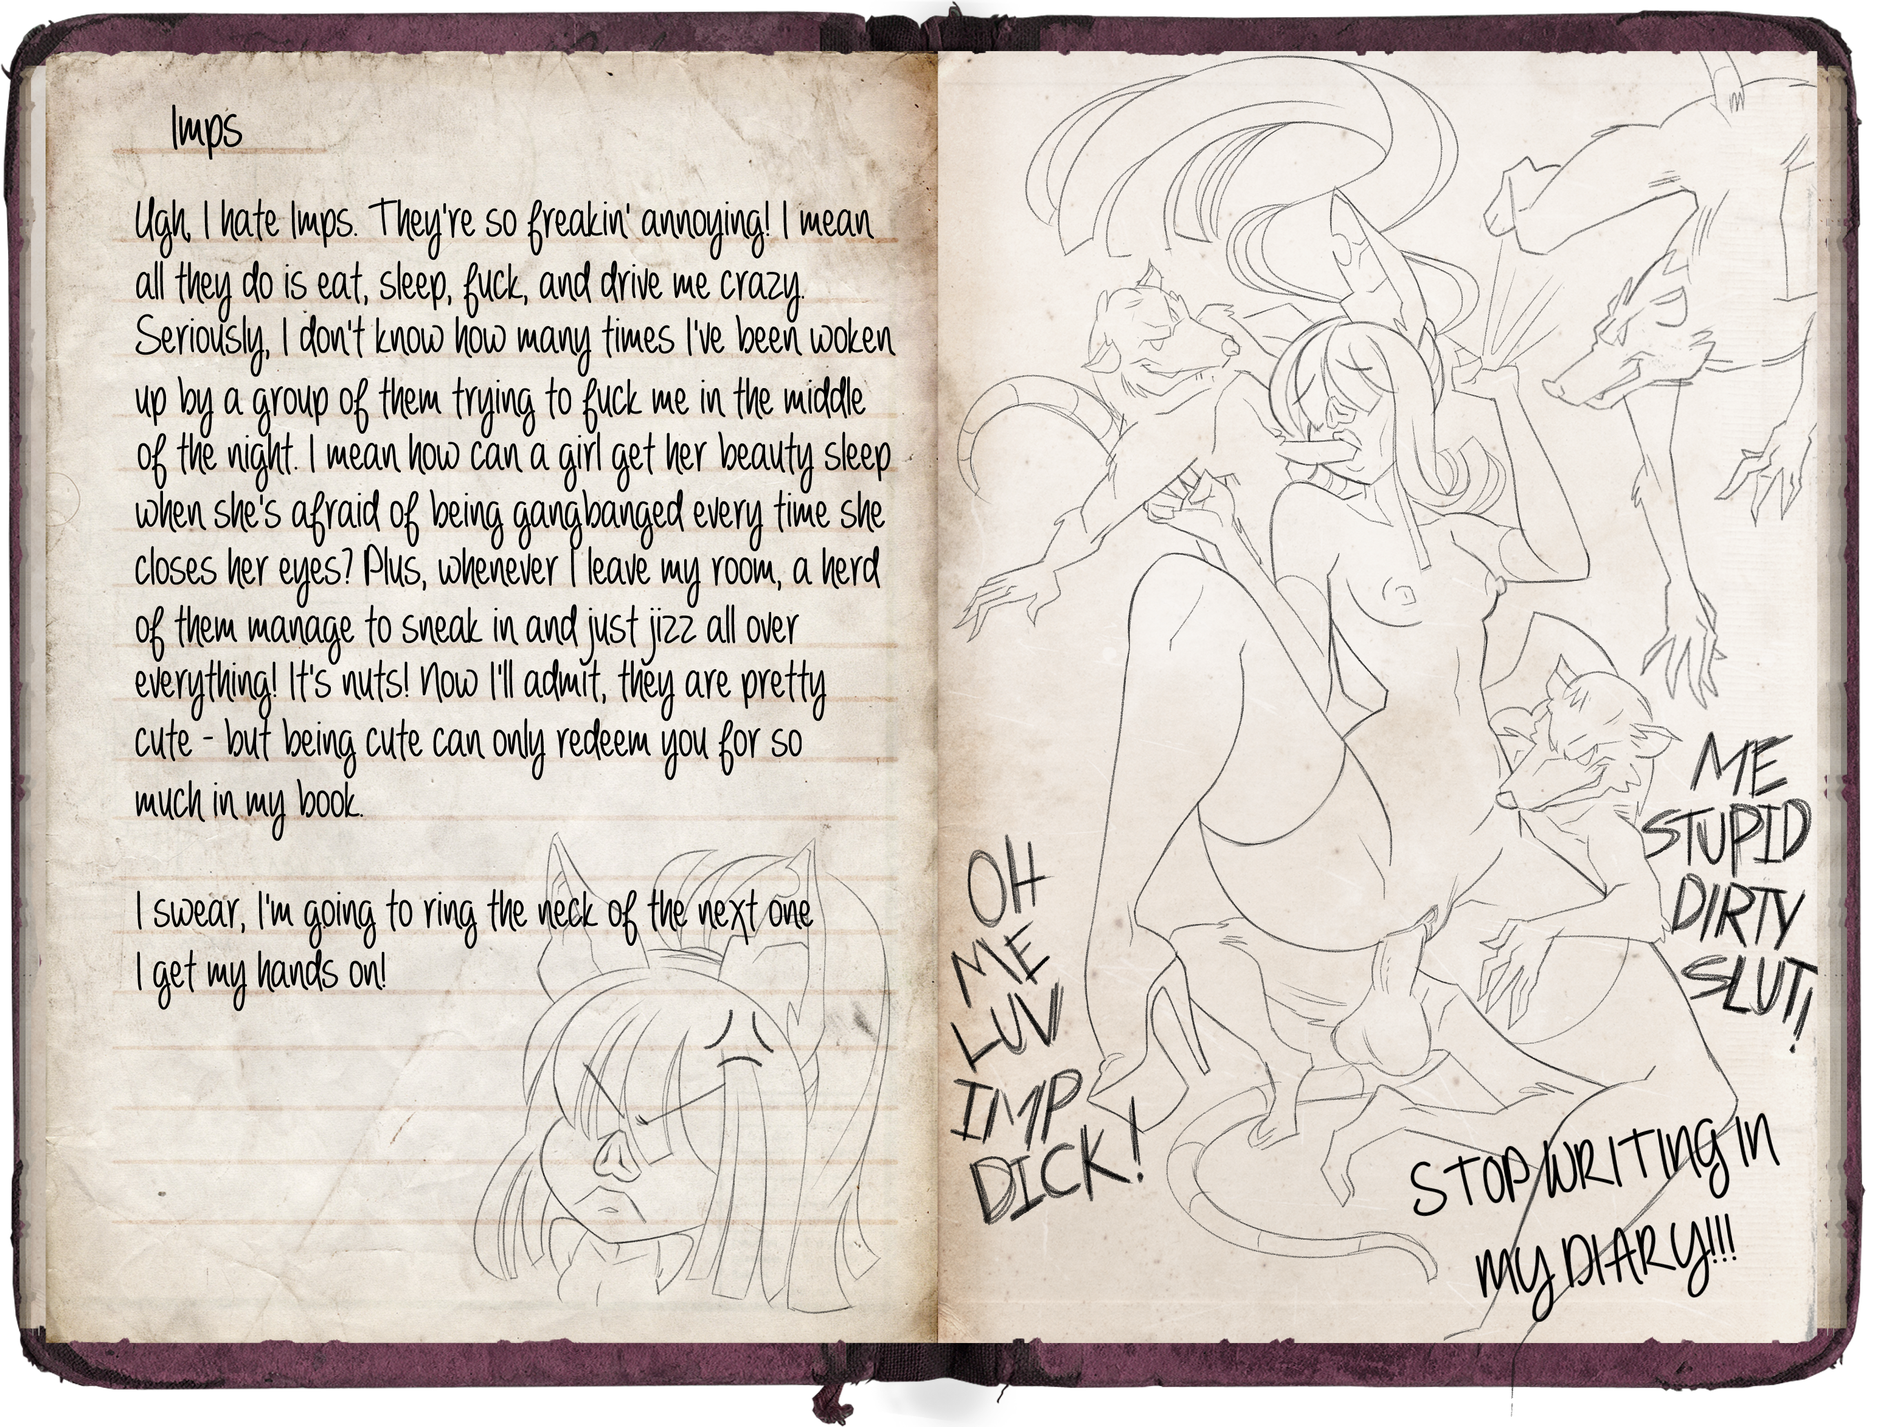 Imps
Ugh, I hate Imps. They're so freakin' annoying! I mean
all they do is eat, sleep, fuck, and drive me crazy.
Seriously, I don't know how many times I've been woken
up by a group of them trying to fuck me in the middle
of the night. I mean how can a girl get her beauty sleep
when she's afraid of being gangbanged every time she
closes her eyes? Plus, whenever I leave my room, a herd
of them manage to sneak in and just jizz all over
everything! It's nuts! Now I'll admit, they are pretty
cute - but being cute can only redeem you for so
much in my book.
I swear, I'm going to ring the neck of the next one
I get my hands on!
OH
ME
LUV
IMP
DICK!
ME
STUPID
DIRTY
SLUT!
STOP WRITING IN
MY DIARY!!!